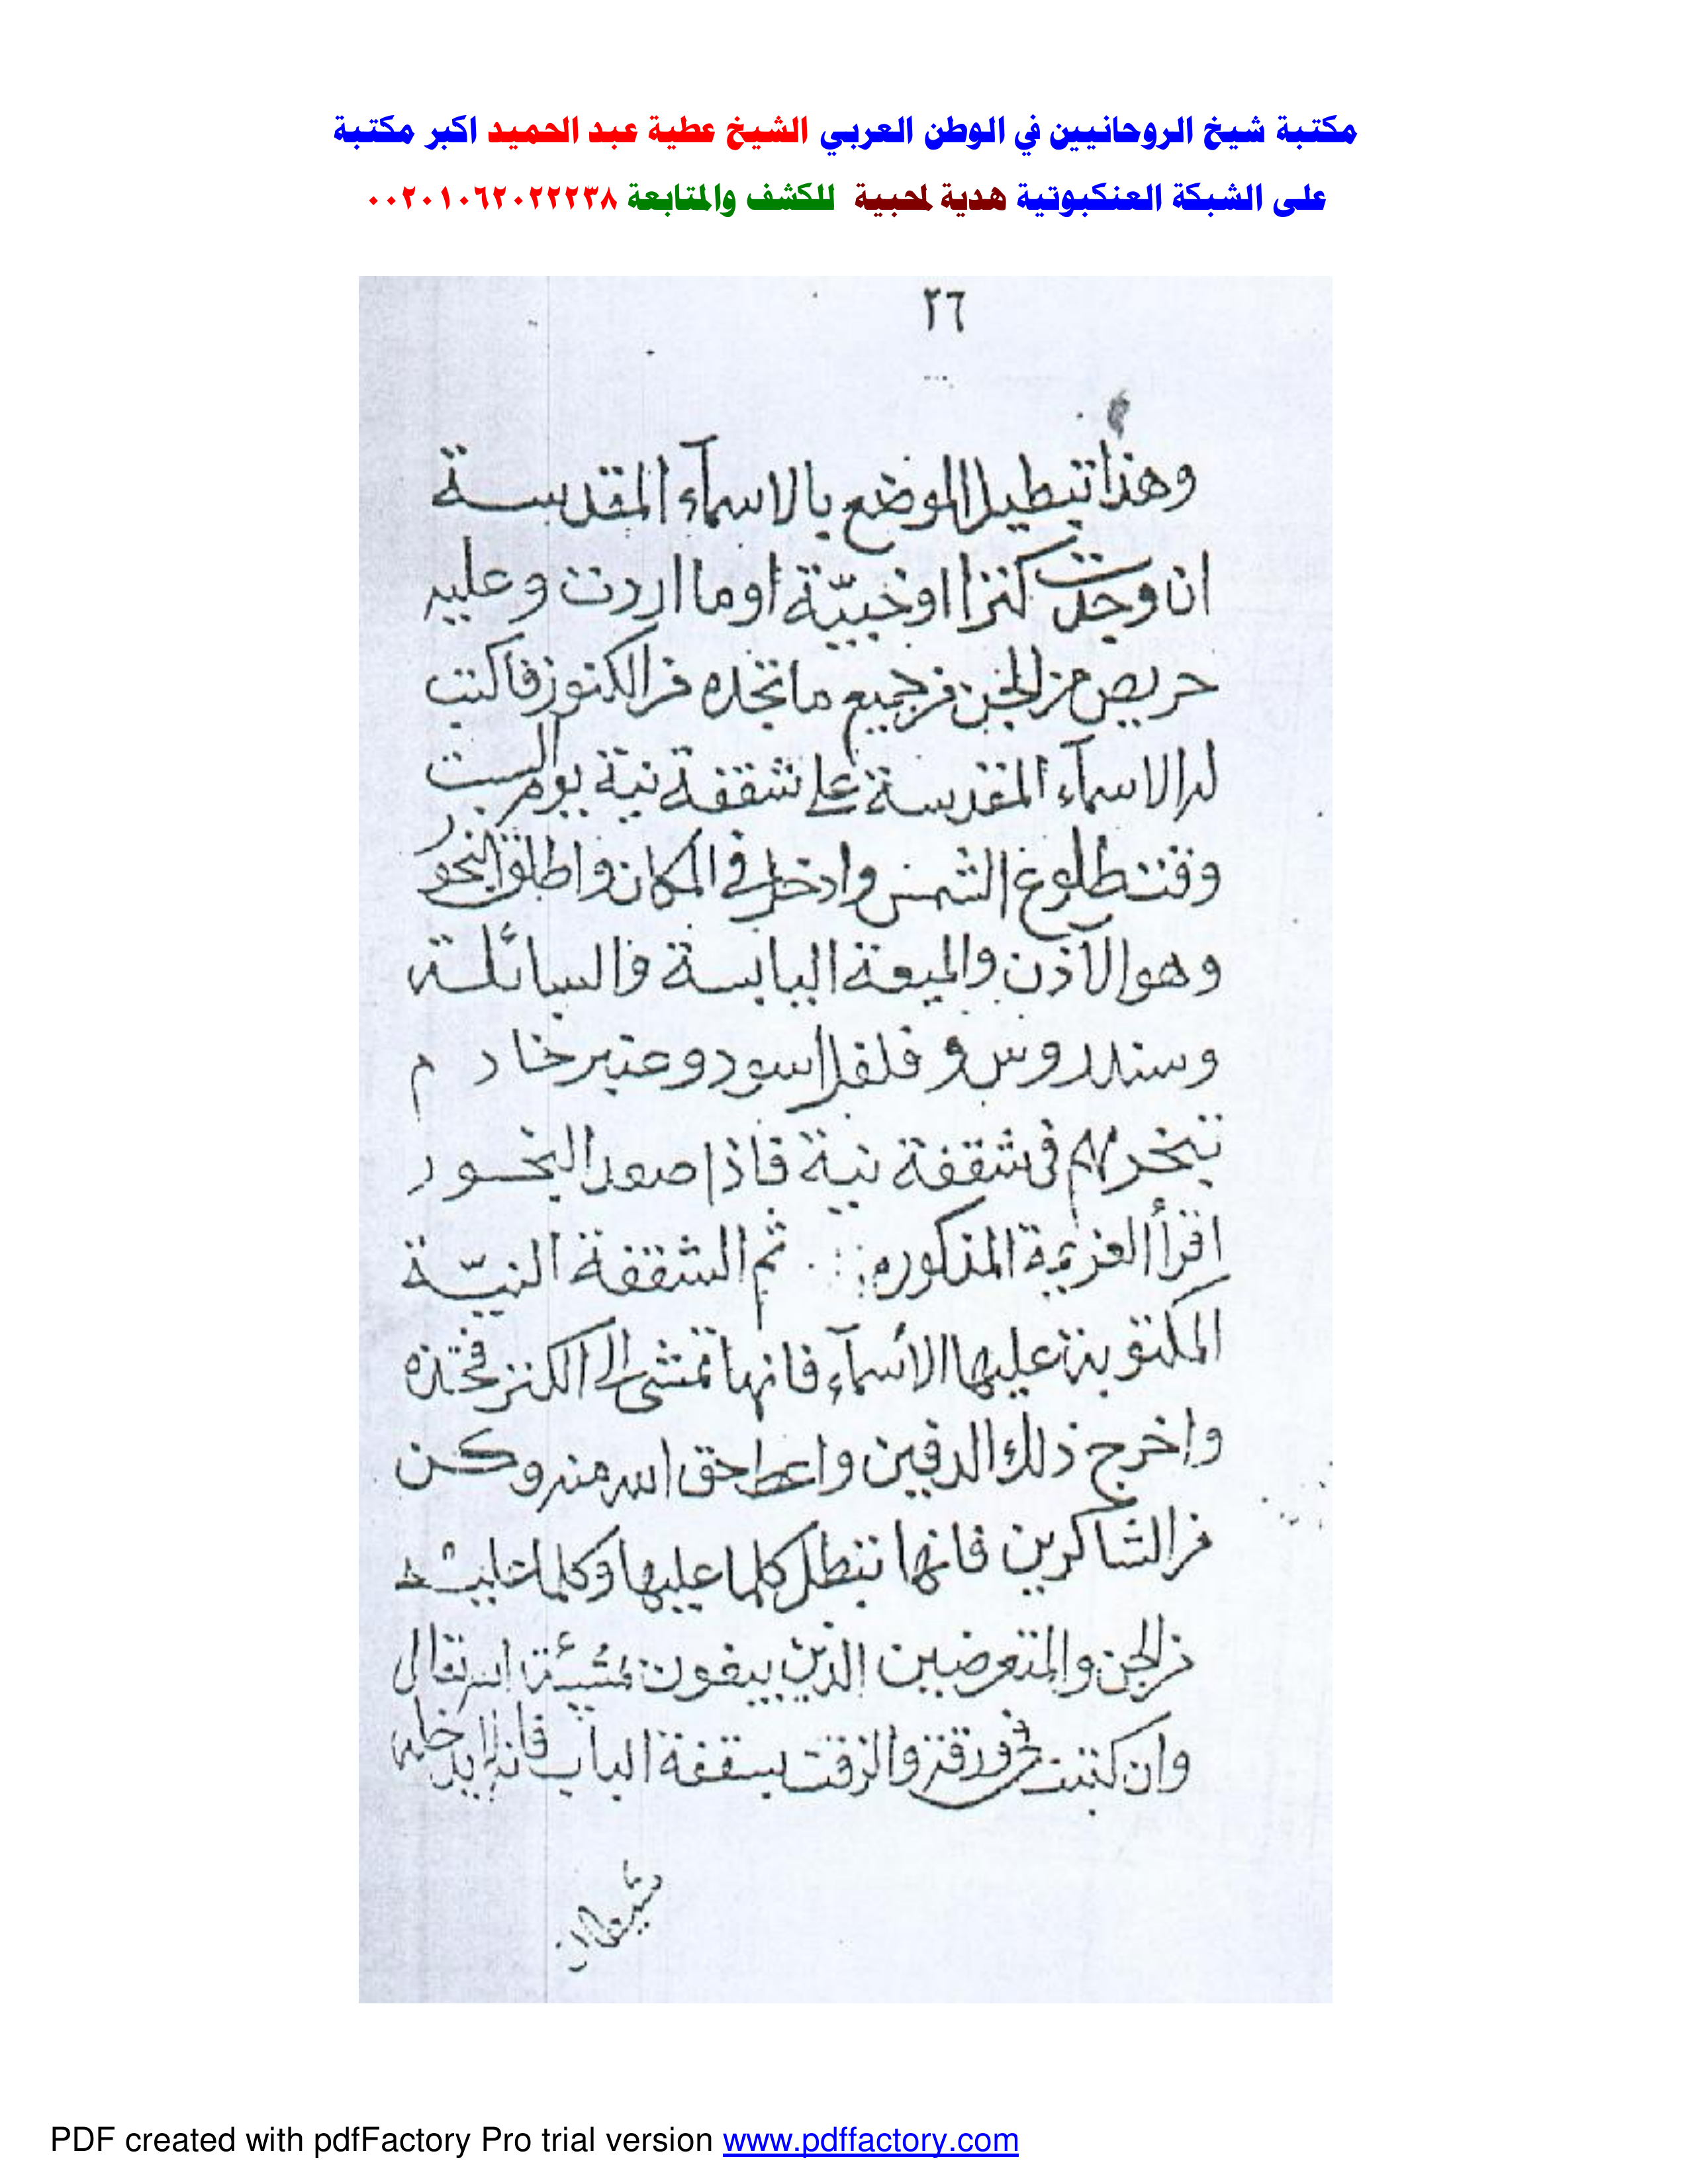 مكتبة شيخ الروحانيين في الوطن العربي الشيخ عطية عبد الحميد اكبر مكتبة
على الشبكة العنكبوتية هدية لمحبية للكشف والمتابعة ٠٠٢٠١٠٦٢٠٢٢٢٣٨
٢٦
وهذا تبطيل الموضع بالاسمآء المقدسة
ان وجدت كنزا او خبيّة او ما اردت وعليه
حريص من الجن من جميع ما تجده من الكنوز فاكتب
له الاسمآء المقدسة على شقفة نية يوم السبت
وقت طلوع الشمس وادخل في المكان واطلق البخور
وهو الآذن والميعة اليابسة والسائلة
وسندروس و فلفل اسود وعنبر خادم
تبخر بهم فى شقفة نية فاذا صعد البخور
اقرأ العزيمة المذكوره ثم الشقفة النيّة
المكتوبة عليها الأسمآء فانها تمشى الى الكنز فخذه
واخرج ذلك الدفين واعط حق الله منه وكن
من الشاكرين فانها تبطل كلما عليها وكلما عليه
من الجن والمتعرضين الذين يبغون بمشيئة الله تعالى
وان كتبت فى ورقة والزقت بسقفة الباب فانه لا يدخله
PDF created with pdfFactory Pro trial version www.pdffactory.com